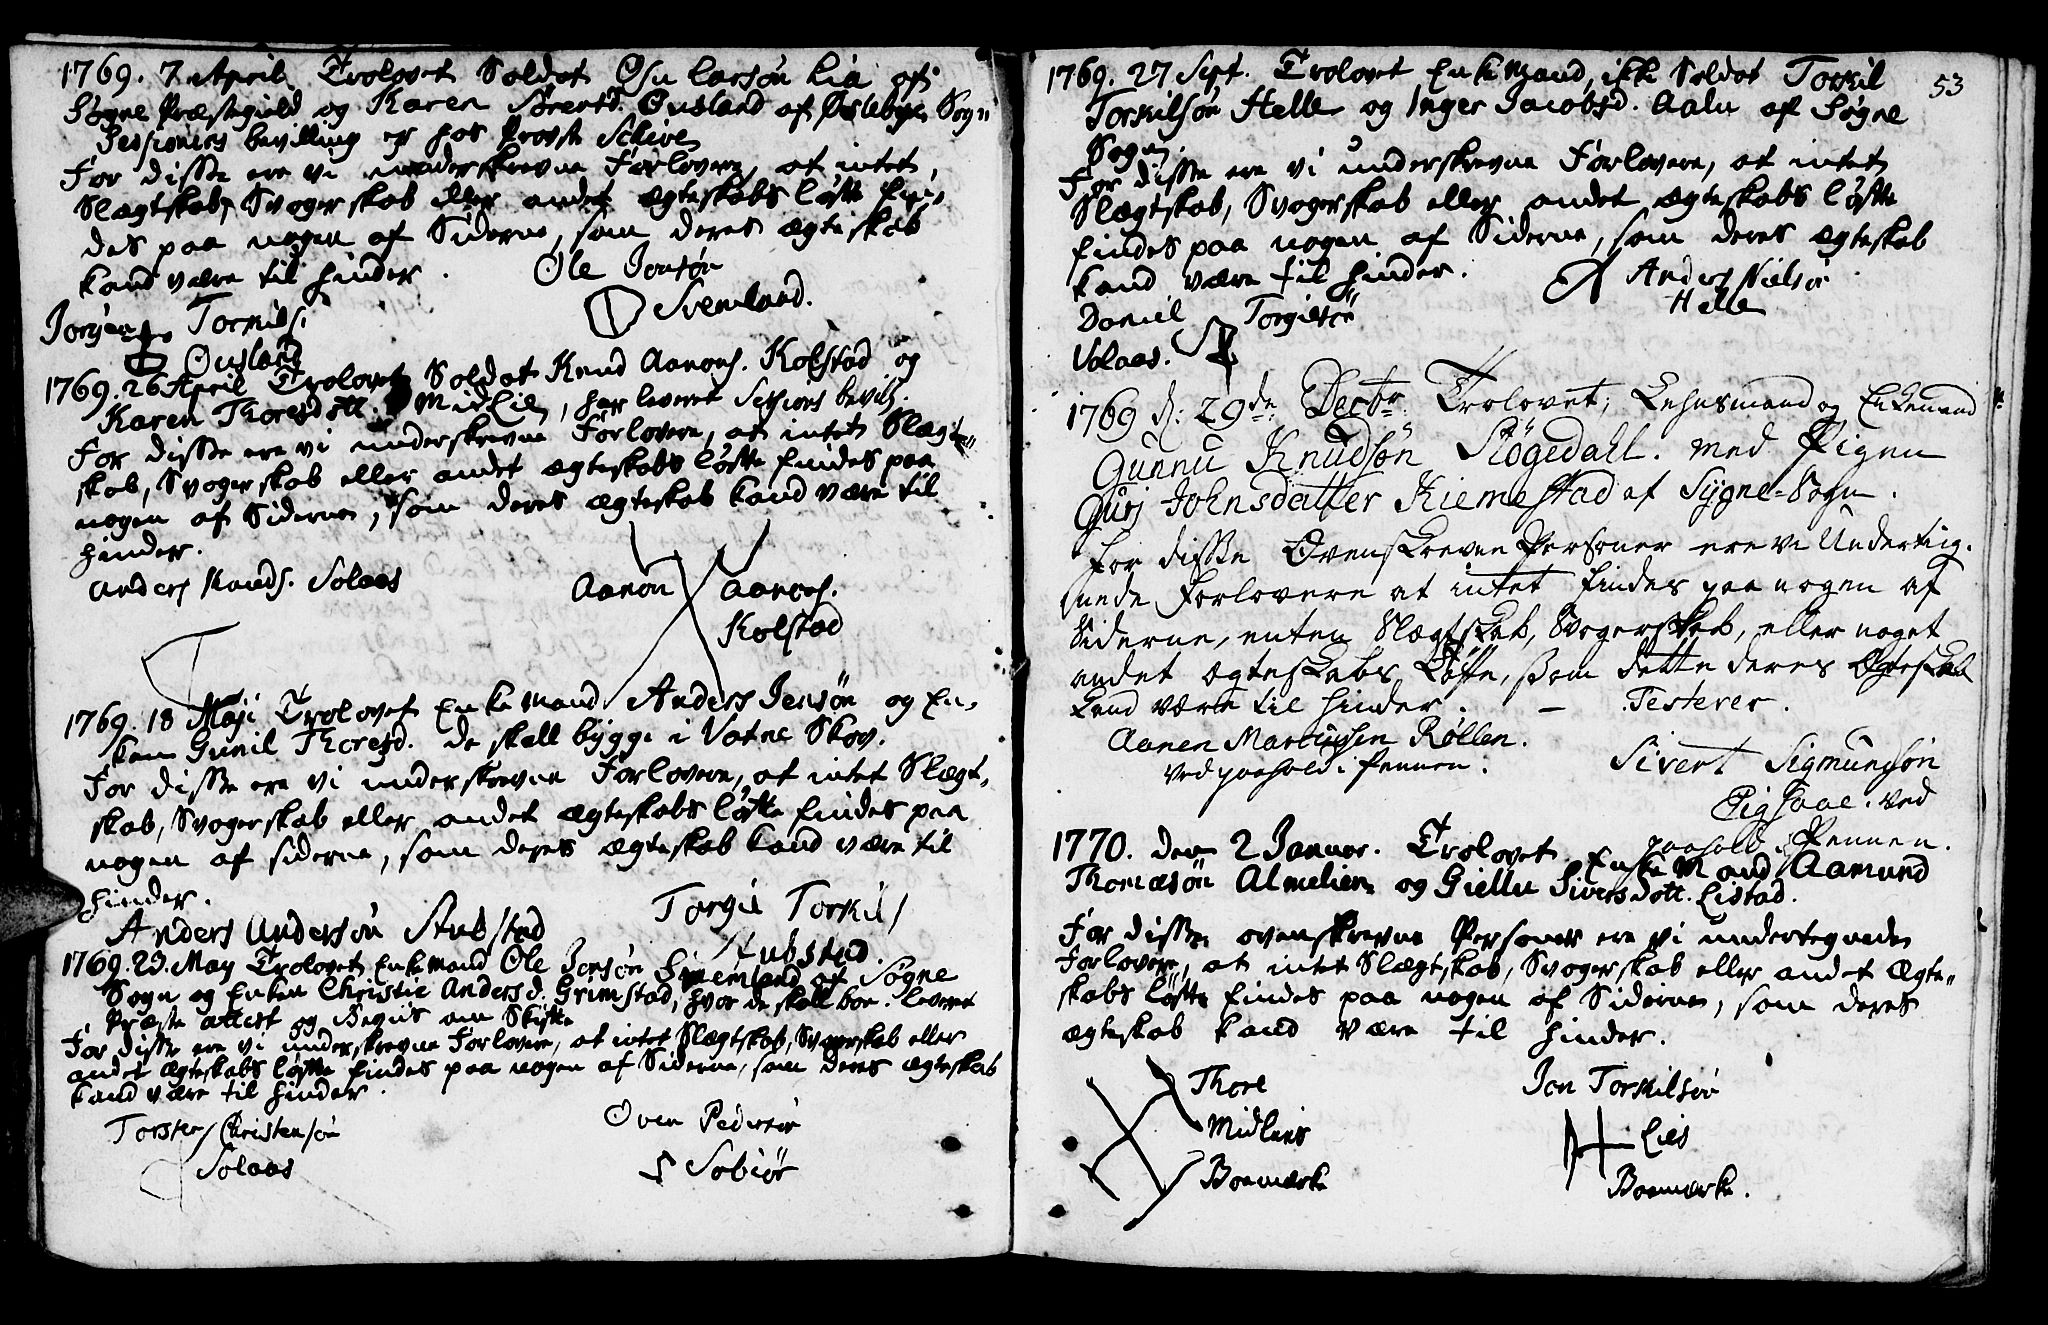 1769. 7 April Trolovet Soldat Osu Larsøn Lia af
Søgne Præstegield og Karen Børentsd. Ousland af Øslebye Sogn
Sessionens bevilling er hos Provst Schive
For disse ere vi underskrevne Forlovere, at intet
Slægtskab, Svogerskab eller andet ægteskabs løfte fin-
des paa nogen af Siderne, som deres ægteskab
kand være til hinder.
Ole Jonsøn
Svenland.
Jørgen Torkils.
Ousland
1769. 26 April Trolovet Soldat Knud Aarons. Kolstad og
Karen Thoresdott. Midlie, har leveret Sessions bevilg.
For disse ere vi underskrevne Forlovere, at intet Slægt-
skab, Svogerskab eller andet ægteskabs løfte findes paa
nogen af Siderne, som deres ægteskab kand være til
hinder.
Anders Knuds. Solaas
Aaron Aarons.
Kolstad
1769. 18 Maji Trolovet Enkemand Anders Jensøn og En-
ken Gunil Thoresd. de skall bygge i Vatne Skov.
For disse ere vi underskrevne Forlovere, at intet Slægt-
skab, Svogerskab eller andet ægteskabs løfte findes paa
nogen af siderne, som deres ægteskab kand være til
hinder.
Anders Andersøn Stubstad
Torgil Torkils
Stubstad.
1769. 23. May Trolovet Enkemand Ole Jonsøn Svenland af Søgne
Sogn og Enken Christie Andersd. Grimstad, hvor de skall boe. leveret
Præste attest og Beviis om Skifte
For disse ere vi underskrevne Forlovere, at intet Slægtskab, Svogerskab eller
andet ægteskabs løfte findes paa nogen af Siderne, som deres ægteskab
kand være til hinder.
Torsten Christensøn
Solaas
Oven Pedersøn
Sobiør
53
1769. 27 Sept. Trolovet Enkemand, ikke Soldat Torkil
Torkilsøn Helle og Inger Jacobsd. Aalu af Søgne
Sogn.
For disse ere vi underskrevne Forlovere, at intet
Slægtskab, Svogerskab eller andet ægteskabs løfte
findes paa nogen af Siderne, som deres ægteskab
kand være til hinder.
Anders Nielsøn
Helle
Daniel Torgilsøn
Volaas.
1769 d: 29de Decbr. Trolovet, Lehnsmand og Enkemand
Gunnu Knudsøn Støgedahl. med Pigen
Guri Johnsdatter Kiemestad af Sygne-Sogn.
For disse Ovenskreven Personer ere vi Underteig-
nede Forlovere at intet findes paa nogen af
Siderne, enten Slægtskab, Svogerskab, eller noget
andet ægteskabs Løfte, som dette deres Ægteskab
kand være til hinder. — Testerer.
Aanen Martinsen Røllen.
ved paahold i Pennen.
Sivert Sigmundsøn
Eigsaae. ved
paahold i Pennen.
1770. den 2 Januar. Trolovet Enkemand Aamund
Thomæsøn Almelien og Giellu Siversdott. Eistad.
For disse ovenskrevne Personer ere vi undertegnede
Forlovere, at intet Slægtskab, Svogerskab eller andet Ægte-
skabs løfte findes paa nogen af Siderne, som deres
ægteskab kand være til hinder.
Thore
Midliens
Boemærke
Jon Torkilsøn
Lies
Boemærke.